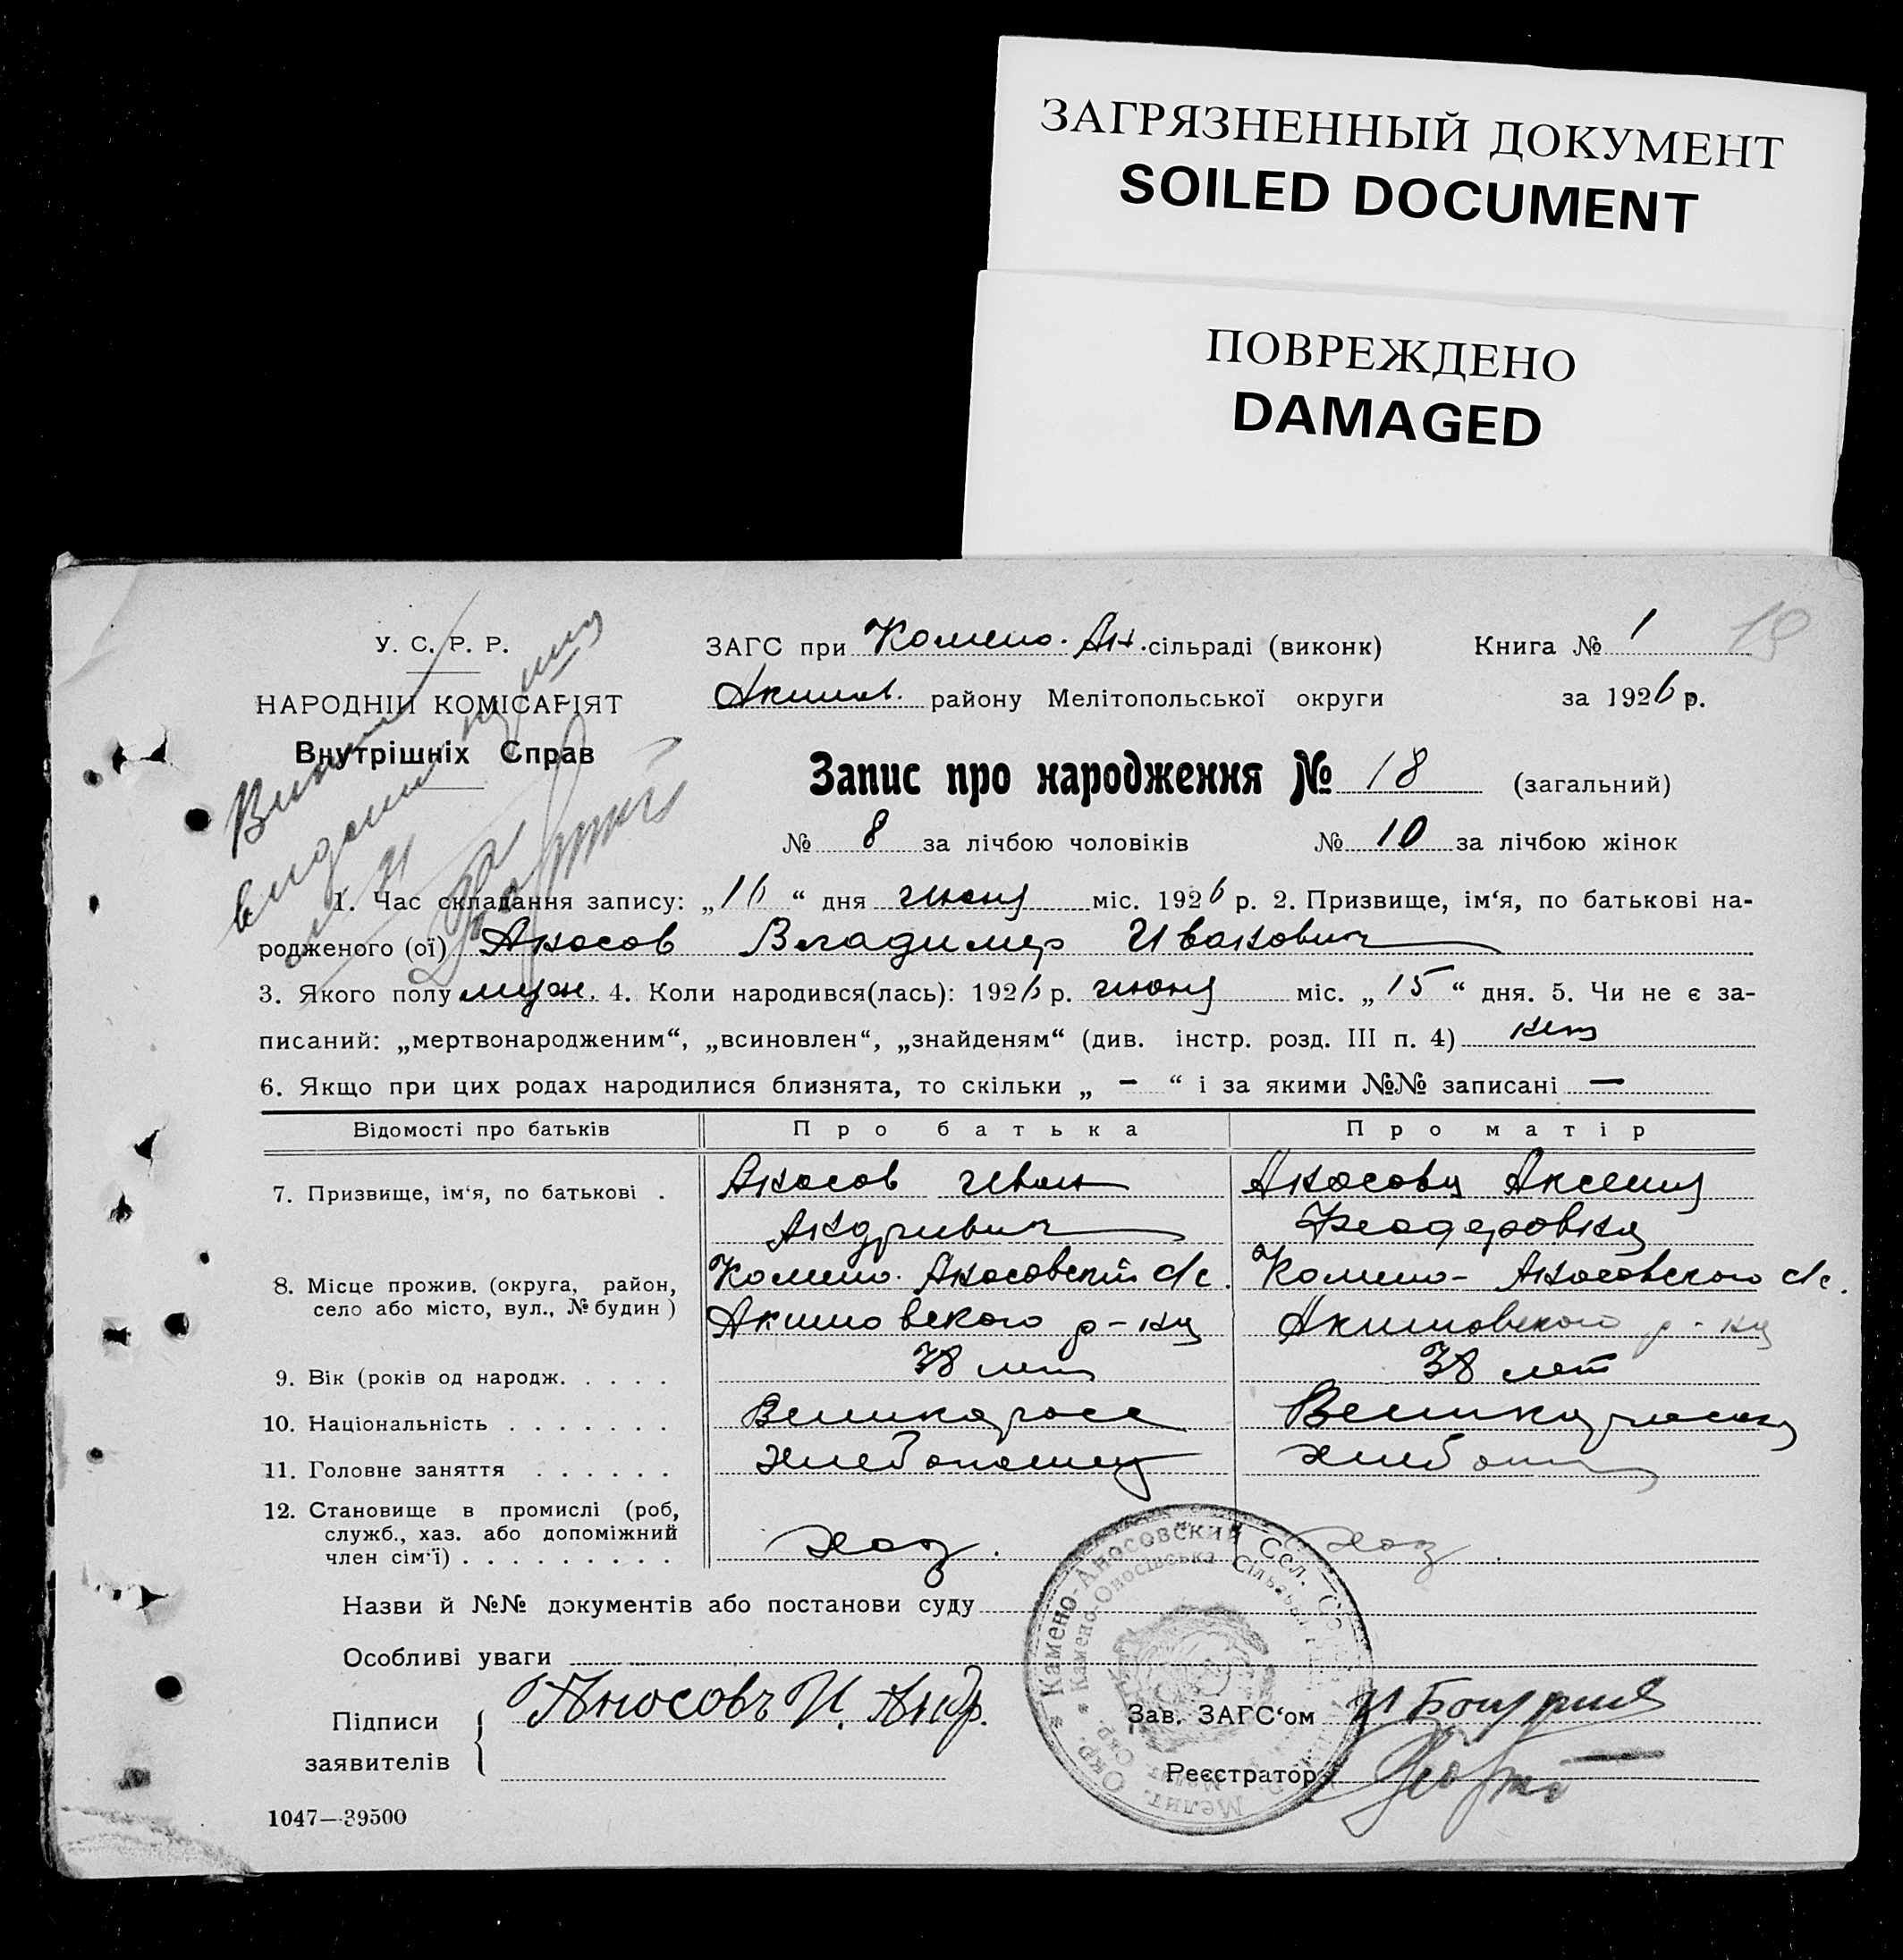 ЗАГРЯЗНЕННЫЙ ДОКУМЕНТ
SOILED DOCUMENT
ПОВРЕЖДЕНО
DAMAGED
У. С. Р. Р.
НАРОДНІЙ КОМІСАРІЯТ
Внутрішніх Справ
ЗАГС при Камено-Ан. сільраді (виконк) Книга № 1 19
Акимов. району Мелітопольської округи за 1926 р.
Запис про народження № 18 (загальний)
№ 8 за лічбою чоловіків № 10 за лічбою жінок
1. Час складання запису: „16“ дня июня міс. 1926 р. 2. Призвище, ім‘я, по батькові на-
родженого (ої) Аносов Владимир Иванович
3. Якого полу муж. 4. Коли народився(лась): 1926 р. июня міс. „15“ дня. 5. Чи не є за-
писаний: „мертвонародженим“, „всиновлен“, „знайденям“ (див. інстр. розд. III п. 4) нет
6. Якщо при цих родах народилися близнята, то скільки „ – “ і за якими №№ записані —
Відомості про батьків Про батька Про матір
7. Призвище, ім‘я, по батькові . Аносов Иван Аносова Аксения
Андриевич Феодоровна
8. Місце прожив. (округа, район, Камено-Аносовский с/с. Камено-Аносовского с/с.
село або місто, вул., № будин) Акимовского р-на Акимовского р-на
9. Вік (років од народж. . . . . 38 лет 38 лет
10. Національність . . . . . . . Великоросс Великоросска
11. Головне заняття . . . . . . хлебопашец хлебопаш
12. Становище в промислі (роб,
служб., хаз. або допоміжний
член сім‘ї) . . . . . . . . . хоз. хоз.
Назви й №№ документів або постанови суду
Особливі уваги
Камено-Аносовский Сел.
Камено-Оносівська Сільська
Мелит. Окр.
Підписи Аносовъ И. Андр. Зав. ЗАГС‘ом
заявителів Реєстратор
1047—39500